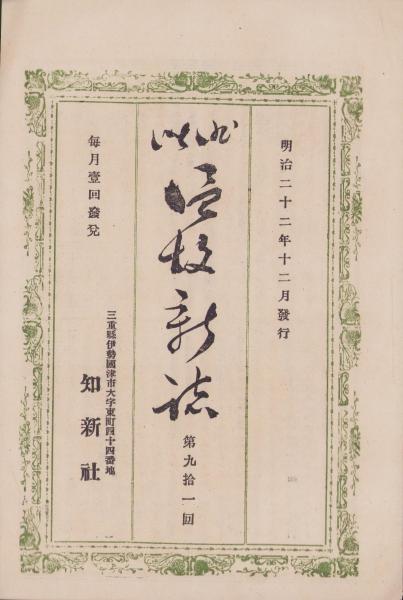 明治二十二年十二月發行
温故新誌
第九拾一回
每月壹回發兌
三重縣伊勢國津市大字東町四十四番地
知新社